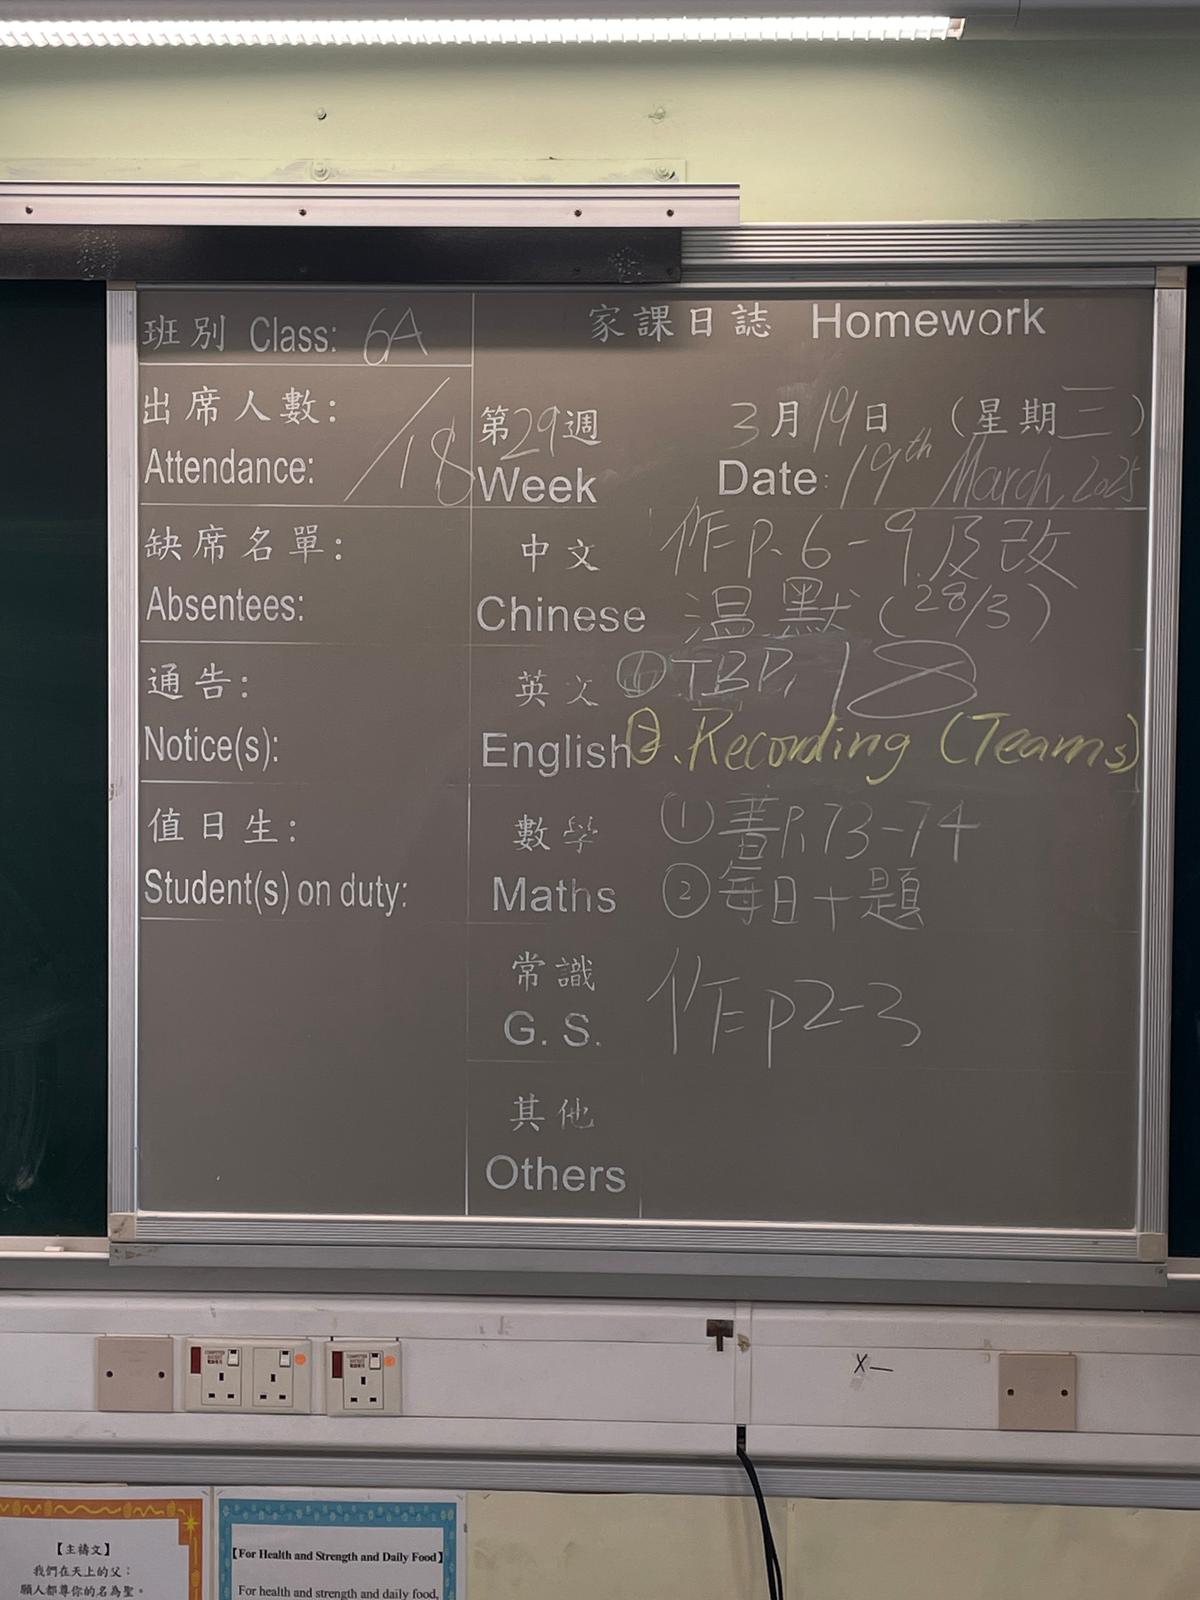 班別 Class: 6A
出席人數:
Attendance: /18
缺席名單:
Absentees:
通告:
Notice(s):
值日生:
Student(s) on duty:
家課日誌 Homework
第29週 3月19日 (星期三)
Week Date: 19th March, 2025
中文 作p.6-9及改
Chinese 溫默(28/3)
英文 ① TBP, 18
English ②. Recording (Teams)
數學 ①書P.73-74
Maths ②每日十題
常識 作p2-3
G. S.
其他
Others
X—
【主禱文】
我們在天上的父:
願人都尊你的名為聖。
【For Health and Strength and Daily Food】
For health and strength and daily food,